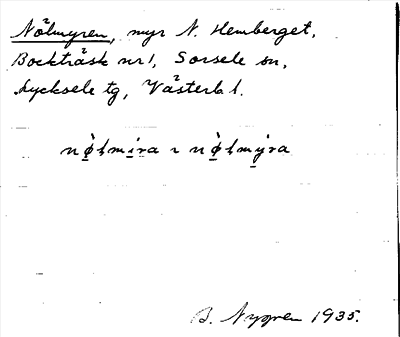 Nölmyren, myr N. Hemberget,
Bockträsk nr 1, Sorsele sn,
Lycksele tg, Västerb l.
B. Nygren 1935.